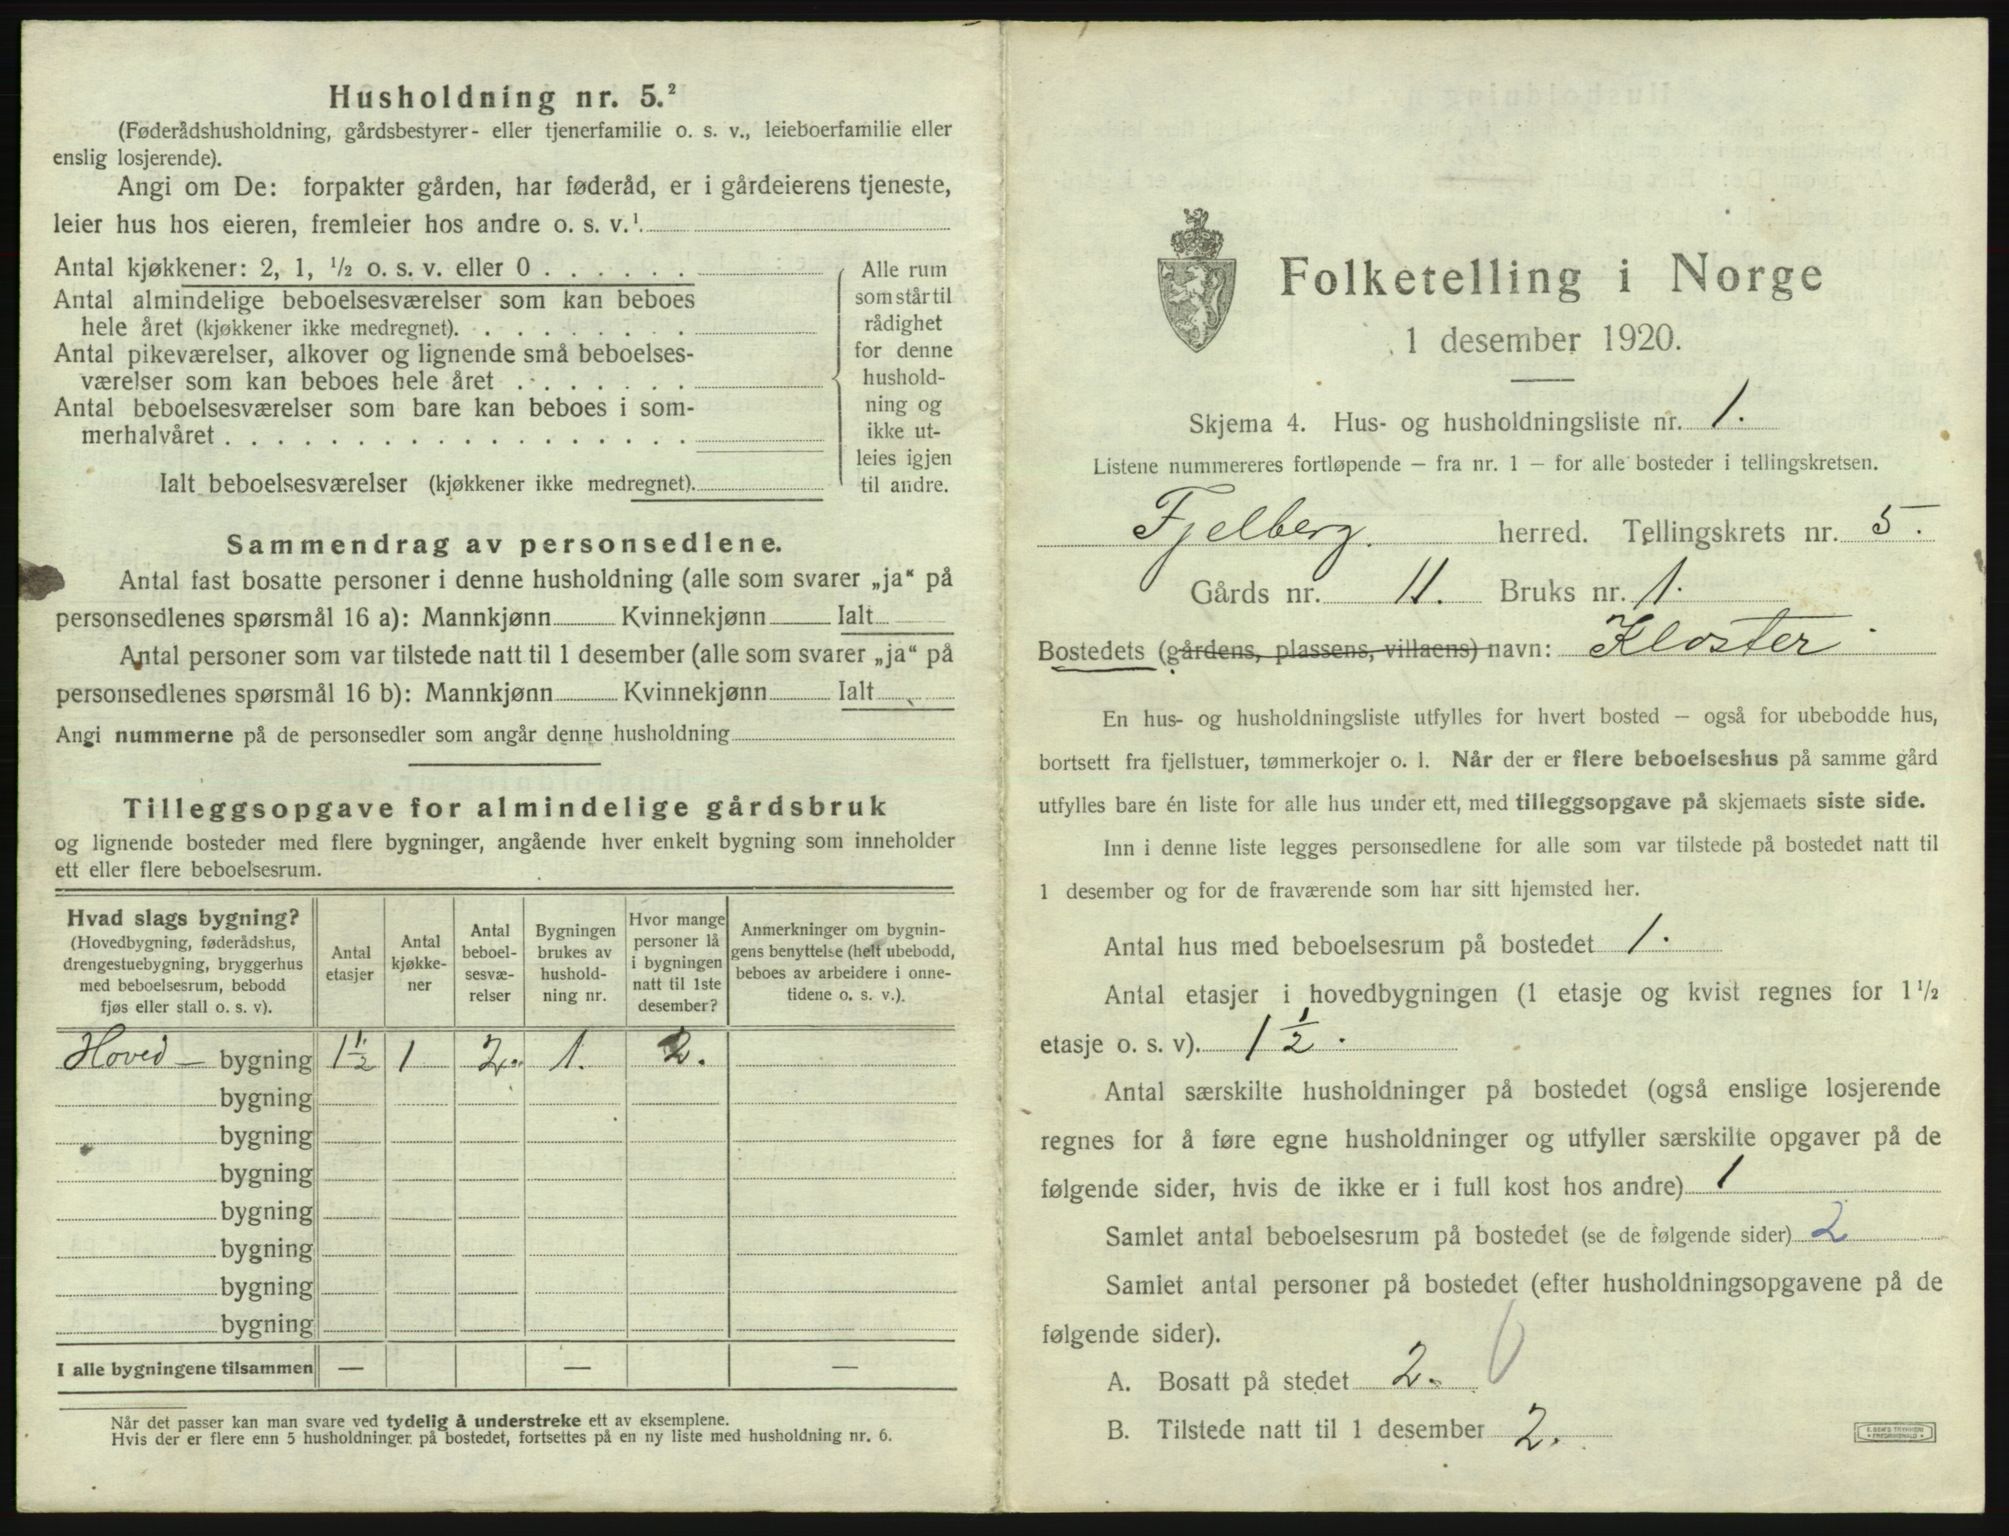 Husholdning nr. 5.²
(Føderådshusholdning, gårdsbestyrer- eller tjenerfamilie o. s. v., leieboerfamilie eller
enslig losjerende).
Angi om De: forpakter gården, har føderåd, er i gårdeierens tjeneste,
leier hus hos eieren, fremleier hos andre o. s. v.¹
Antal kjøkkener: 2, 1, ½ o. s. v. eller 0 . . . . . .
Antal almindelige beboelsesværelser som kan beboes
hele året (kjøkkener ikke medregnet). . . . . . . . .
Antal pikeværelser, alkover og lignende små beboelses-
værelser som kan beboes hele året . . . . . . .
Antal beboelsesværelser som bare kan beboes i som-
merhalvåret . . . . . . . . . . . . . . . . . .
Ialt beboelsesværelser (kjøkkener ikke medregnet).
Alle rum
som står til
rådighet
for denne
hushold-
ning og
ikke ut-
leies igjen
til andre.
Sammendrag av personsedlene.
Antal fast bosatte personer i denne husholdning (alle som svarer „ja“ på
personsedlenes spørsmål 16 a): Mannkjønn Kvinnekjønn Ialt
Antal personer som var tilstede natt til 1 desember (alle som svarer „ja“ på
personsedlenes spørsmål 16 b): Mannkjønn Kvinnekjønn Ialt
Angi nummerne på de personsedler som angår denne husholdning
Tilleggsopgave for almindelige gårdsbruk
og lignende bosteder med flere bygninger, angående hver enkelt bygning som inneholder
ett eller flere beboelsesrum.
Hvad slags bygning?
(Hovedbygning, føderådshus,
drengestuebygning, bryggerhus
med beboelsesrum, bebodd
fjøs eller stall o. s. v).
Antal
etasjer
Antal
kjøkke-
ner
Antal
beboel-
sesvæ-
relser
Bygningen
brukes av
hushold-
ning nr.
Hvor mange
personer lå
i bygningen
natt til 1ste
desember?
Anmerkninger om bygnin-
gens benyttelse (helt ubebodd,
beboes av arbeidere i onne-
tidene o. s. v.).
Hoved - bygning 1½ 1 2. 1. 2.
bygning
bygning
bygning
bygning
bygning
bygning
bygning
I alle bygningene tilsammen — — —
Når det passer kan man svare ved tydelig å understreke ett av eksemplene.
Hvis der er flere enn 5 husholdninger på bostedet, fortsettes på en ny liste med husholdning nr. 6.
Folketelling i Norge
1 desember 1920.
Skjema 4. Hus- og husholdningsliste nr. 1.
Listene nummereres fortløpende — fra nr. 1 — for alle bosteder i tellingskretsen.
Fjelberg. herred. Tellingskrets nr. 5.
Gårds nr. 11. Bruks nr. 1.
Bostedets (gårdens, plassens, villaens) navn: Kloster
En hus- og husholdningsliste utfylles for hvert bosted — også for ubebodde hus,
bortsett fra fjellstuer, tømmerkojer o. l. Når der er flere beboelseshus på samme gård
utfylles bare én liste for alle hus under ett, med tilleggsopgave på skjemaets siste side.
Inn i denne liste legges personsedlene for alle som var tilstede på bostedet natt til
1 desember og for de fraværende som har sitt hjemsted her.
Antal hus med beboelsesrum på bostedet 1.
Antal etasjer i hovedbygningen (1 etasje og kvist regnes for 1 ½
etasje o. s. v). 1½.
Antal særskilte husholdninger på bostedet (også enslige losjerende
regnes for å føre egne husholdninger og utfyller særskilte opgaver på de
følgende sider, hvis de ikke er i full kost hos andre) 1
Samlet antal beboelsesrum på bostedet (se de følgende sider) 2
Samlet antal personer på bostedet (efter husholdningsopgavene på de
følgende sider).
A. Bosatt på stedet 2.
B. Tilstede natt til 1 desember 2.